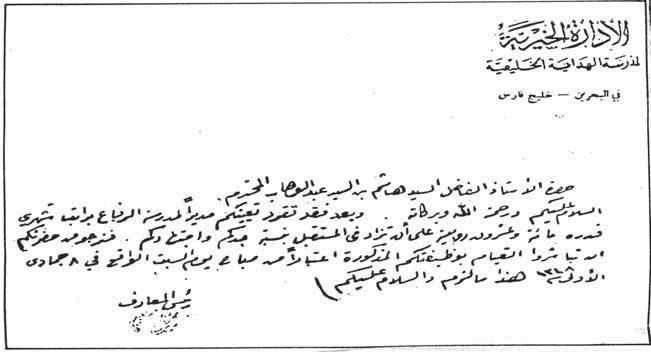 الإدارة الخيرية
لمدرسة الهداية الخليفية
في البحرين — خليج فارس
حضرة الأستاذ الفاضل السيد هاشم بن السيد عبد الوهاب المحترم
السلام عليكم ورحمة الله وبركاته . وبعد فقد تقرر تعيينكم مديراً لمدرسة الرفاع براتب شهري
قدره مائة وعشرون روبية على أن تزاد في المستقبل نسبة جدكم واجتهادكم . فنرجو من حضرتكم
ان تباشروا القيام بوظيفتكم المذكورة اعتباراً من صباح يوم السبت الموافق في ٨ جمادى
الأولى هذا ما لزم والسلام عليكم
رئيس المعارف